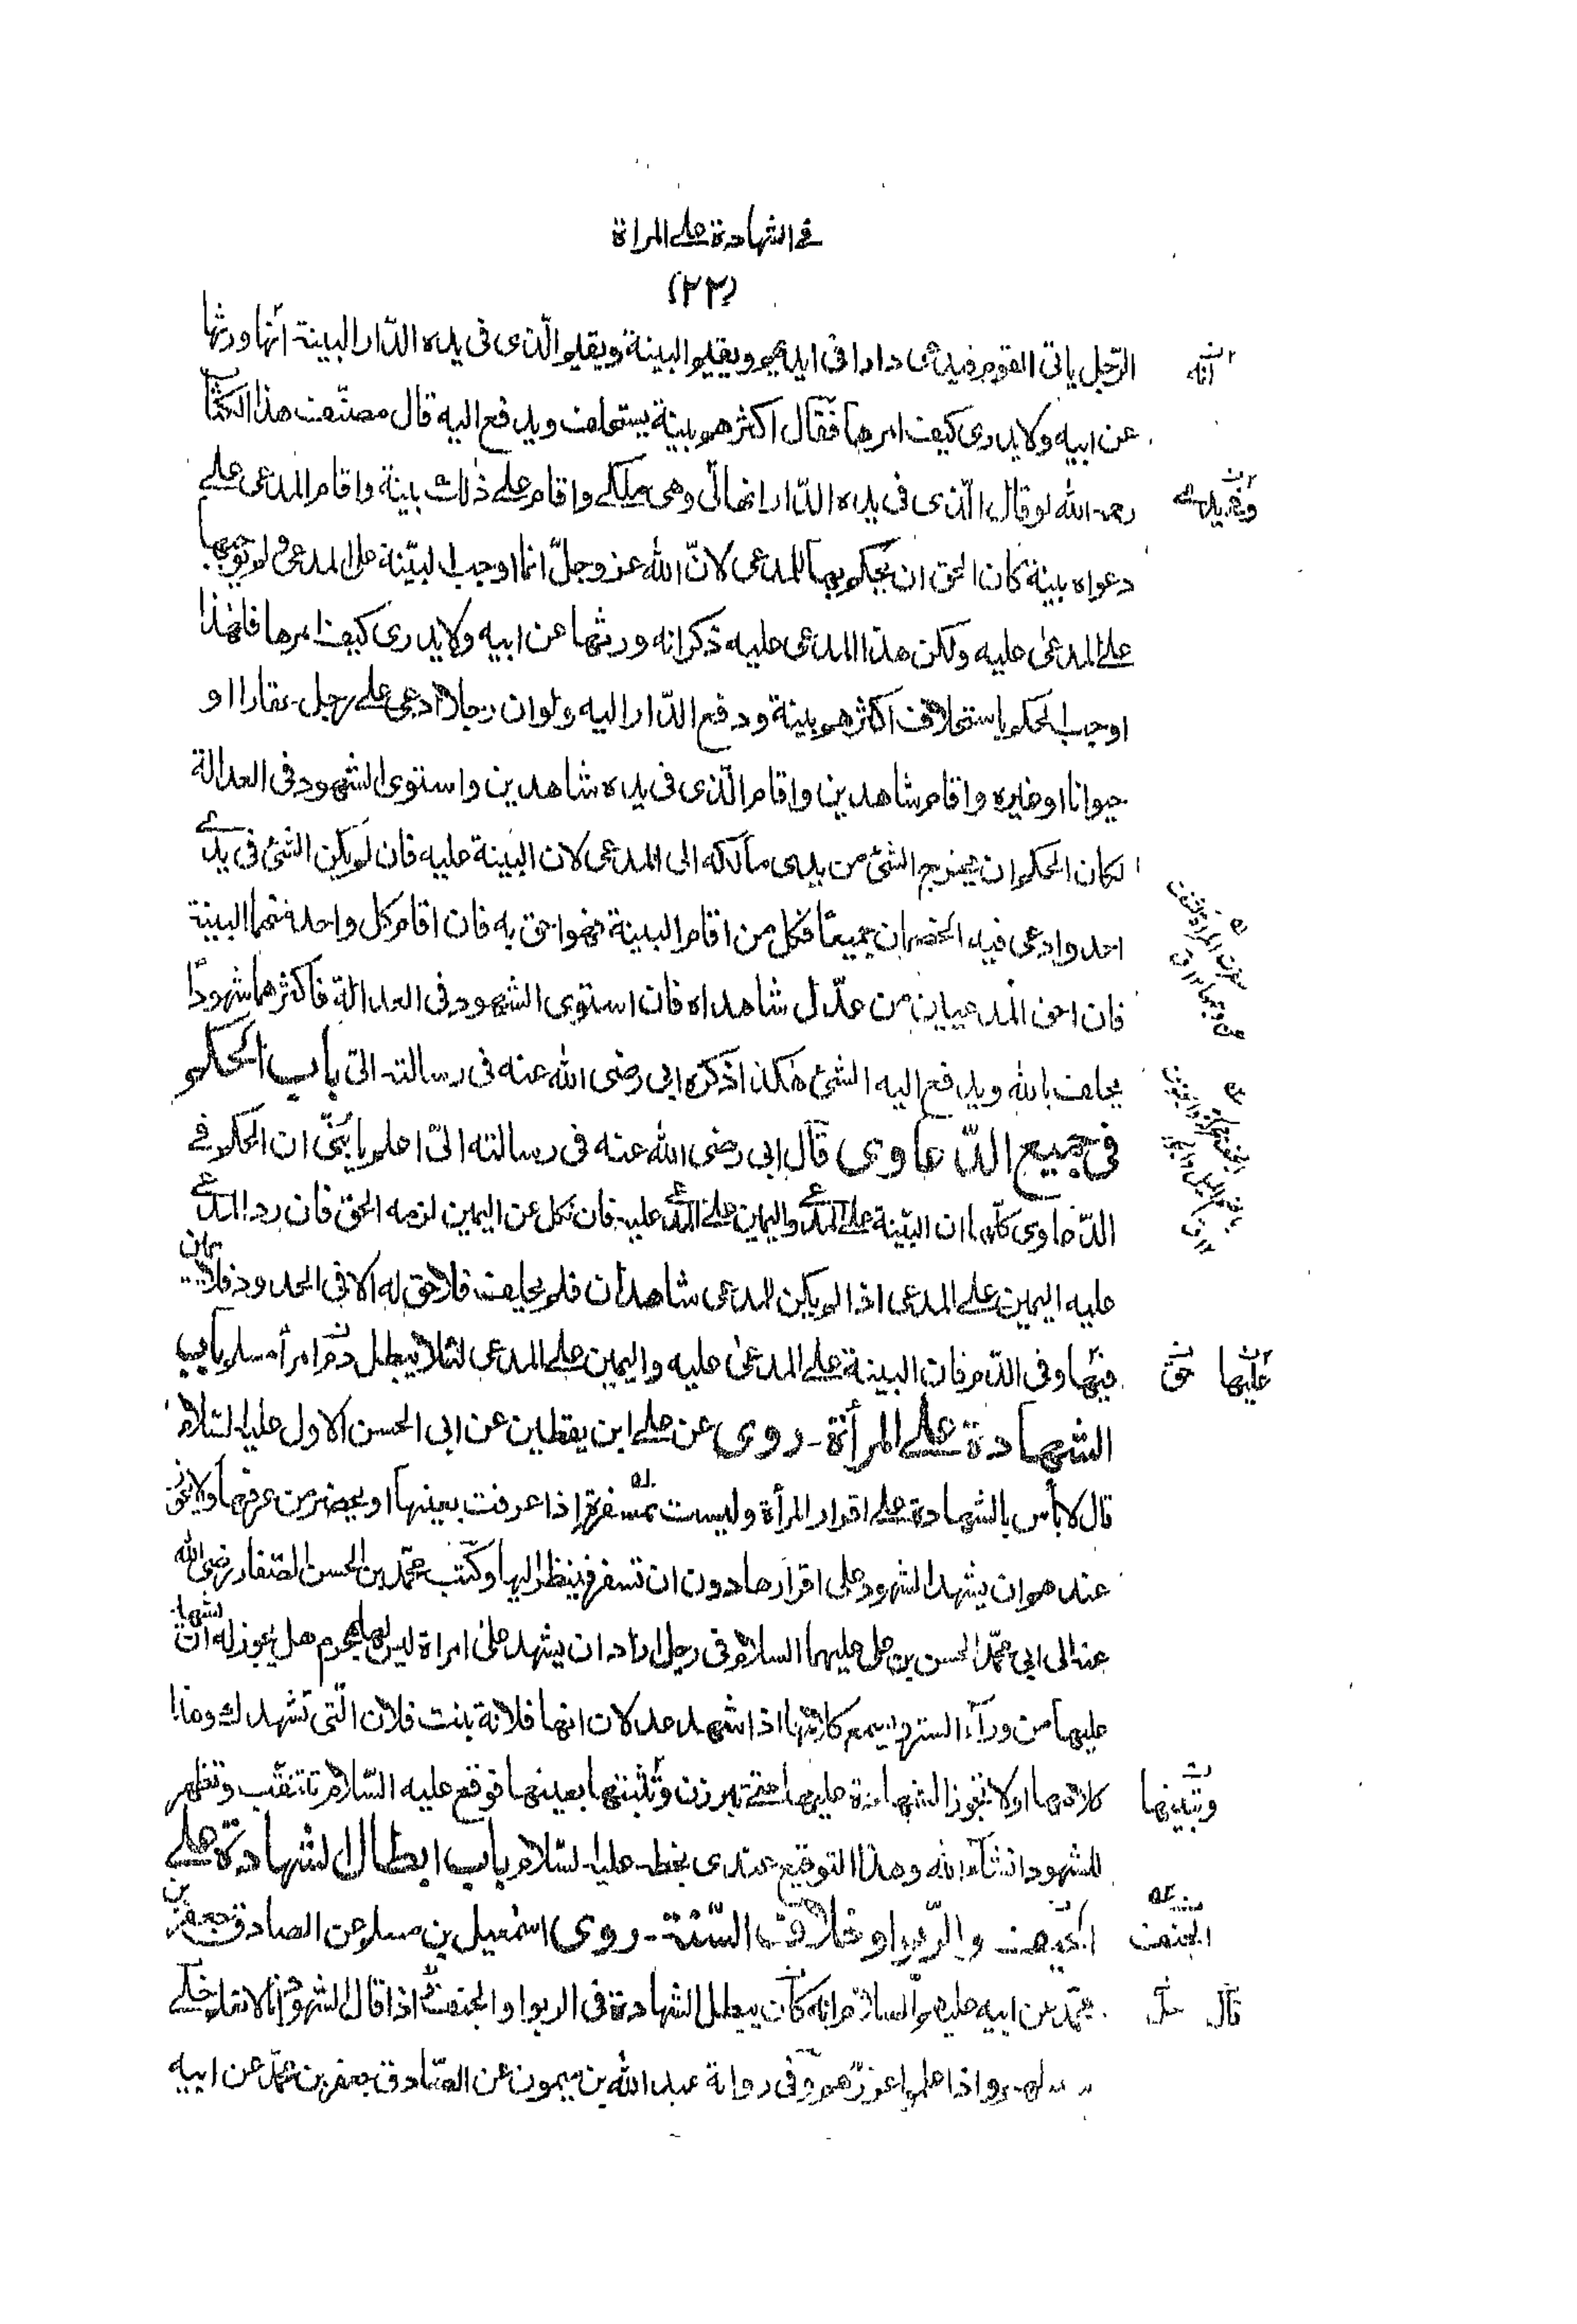 في الشهادة على المراة
(٢٢)
الرّجل ياتي القوم فيدعى دارا فى ايديهم ويقيم البينة ويقيم الّذى فى يده الدّار البينة انّها ورثها
عن ابيه ولا يدرى كيف امرها فقال اكثرهم بينة يستحلف ويدفع اليه قال مصنّف هذا الكتاب
رحمه الله لو قال الّذى فى يده الدّار انها لى وهى ملكى واقام على ذلك بينة واقام المدعى على
دعواه بينة كان الحق ان يحكم بها للمدعى لانّ الله عز وجلّ انما اوجب البيّنة على المدعى ولم يوجبها
على المدعى عليه ولكن هذا المدعى عليه ذكر انه ورثها عن ابيه ولا يدرى كيف امرها فلهذا
اوجب الحكم باستحلاف اكثرهم بينة ودفع الدّار اليه ولو ان رجلا ادعى على رجل عقارا او
حيوانا او غيره واقام شاهدين واقام الّذى فى يده شاهدين واستوى الشهود فى العدالة
لكان الحكم ان يخرج الشئ من يدى مالكه الى المدعى لان البينة عليه فان لم يكن الشئ فى يدى
احد وادعى فيه الخصمان جميعا فكل من اقام البينة فهو احق به فان اقام كل واحد منهما البينة
فان احق المدعيين من عدّل شاهداه فان استوى الشهود فى العدالة فاكثرهما شهودًا
يحلف بالله ويدفع اليه الشئ هكذا ذكره ابى رضى الله عنه فى رسالته الىّ باب الحكم
فى جميع الدّعاوى قال ابى رضى الله عنه فى رسالته الىّ اعلم يا بنىّ ان الحكم فى
الدّعاوى كلّها ان البيّنة على المدّعى واليمين على المدّعى عليه فان نكل عن اليمين لزمه الحق فان رد المدّعى
عليه اليمين على المدعى اذا لم يكن للمدعى شاهدان فلم يحلف فلا حق له الا فى الحدود فلا يمين
فيها وفى الدّم فان البينة على المدعى عليه واليمين على المدعى لئلا يبطل دم امرأ مسلم باب
عليها حق
الشهادة على المرأة - روى عن على ابن يقطين عن ابى الحسن الاول عليه السّلام
قال لا بأس بالشهادة على اقرار المرأة وليست بمسفرة اذا عرفت بعينها او يحضر من عرفها ولا يجوز
عندهم ان يشهد الشهود على اقرارها دون ان تسفر فينظر اليها وكتب محمّد بن الحسن الصّفار رضى الله
عنه الى ابى محمّد الحسن بن على عليهما السلام فى رجل اراد ان يشهد على امراة ليس لها بمحرم هل يجوز له ان يشهد
عليها من ورآء الستر ويسمع كلامها اذا شهد عدلان انها فلانة بنت فلان الّتى تشهدك وهذا
كلامها او لا تجوز الشهادة عليها حتى تبرزن وتثبتها بعينها فوقع عليه السّلام تتنقب وتظهر
للشهود انشآء الله وهذا التوقيع عندى بخطه عليه السّلام باب ابطال الشهادة على
الجنف والرّبوا وخلاف السّنة - روى اسمعيل بن مسلم عن الصادق جعفر بن
الجنف
محمّد عن ابيه عليهم السلام انه كان يبطل الشهادة فى الربوا والجنف اذا قال الشهود انا لا نعلم خلى
قال
واذا علموا عزرهم وفى رواية عبد الله بن ميمون عن الصّادق جعفر بن محمّد عن ابيه